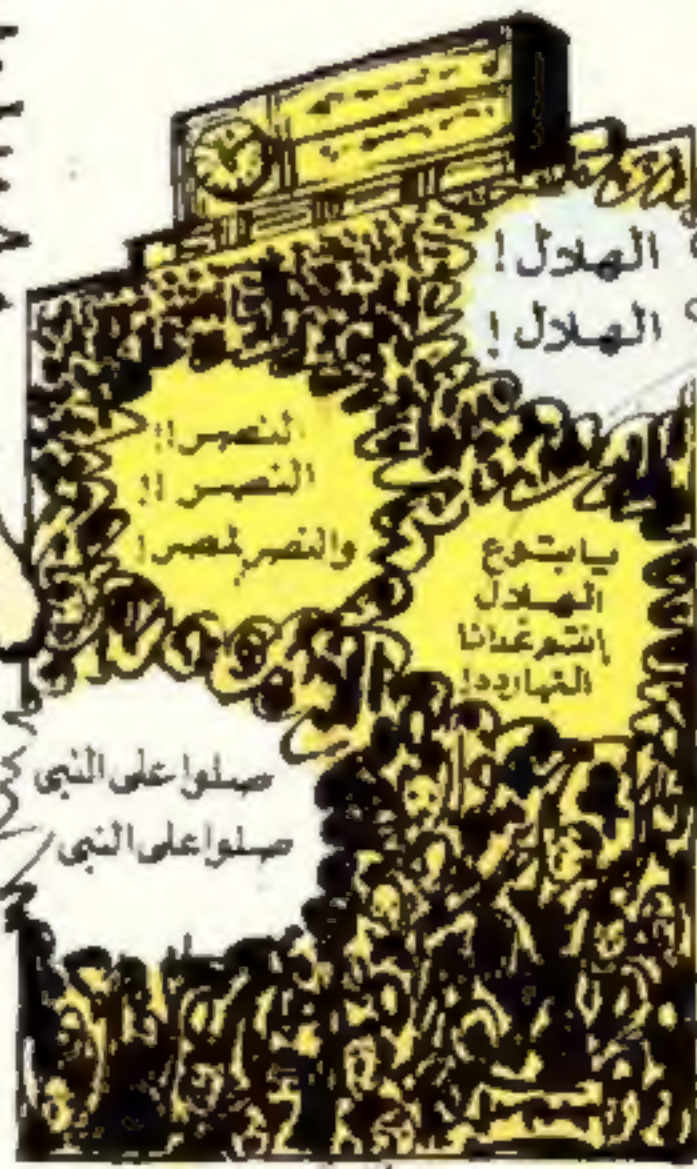 الهلال!
الهلال!
النصر!!
النصر!!
والنصر لمصر!
يابتوع
الهلال
إنتم غدانا
النهارده!
صلوا على النبى
صلوا على النبى